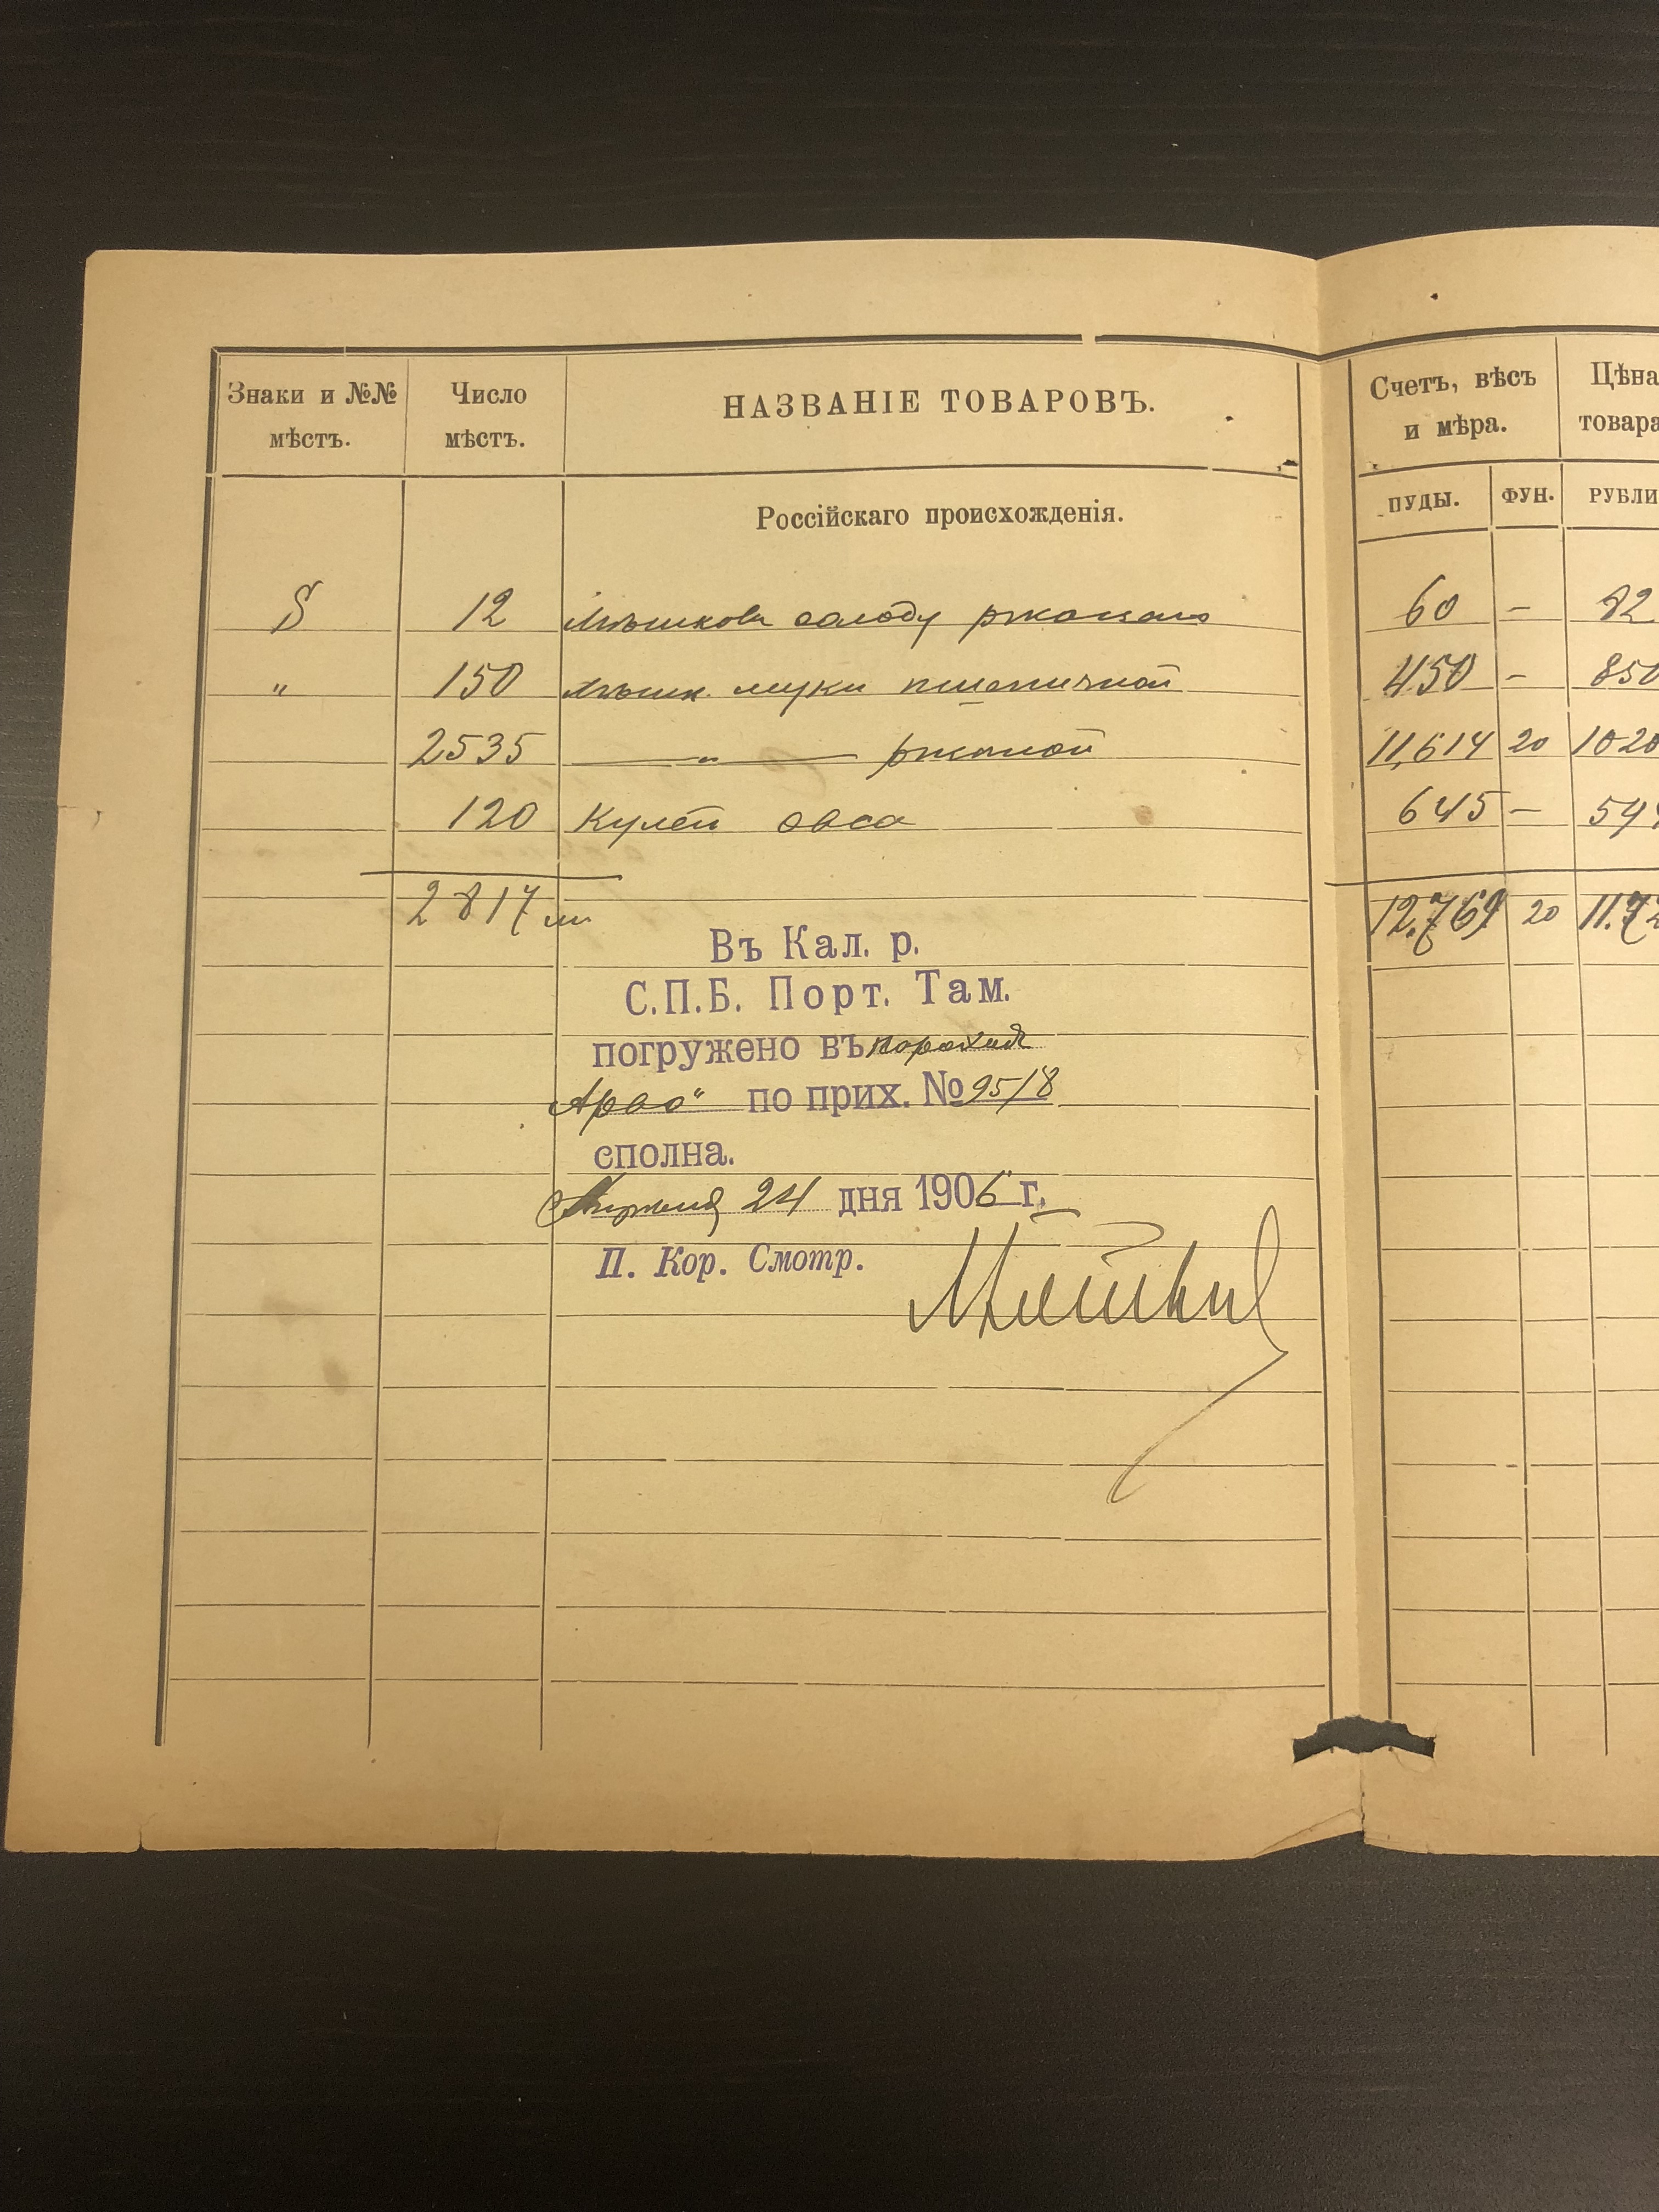 Знаки и №№ мѣстъ. Число мѣстъ. НАЗВАНІЕ ТОВАРОВЪ. Счетъ, вѣсъ и мѣра. Цѣна товара
ПУДЫ. ФУН. РУБЛИ
Россійскаго происхожденія.
S 12 Мѣшковъ солоду ржаного 60 – 82
" 150 мѣшк. муки пшеничной 450 – 850
2535 — " — ржаной 11,614 20 1020
120 Кулей овса 645 –
2817 м 12.769 20
Въ Кал. р.
С.П.Б. Порт. Там.
погружено въ пароходъ
по прих. № 9518
сполна.
24 дня 1906 г.
П. Кор. Смотр.